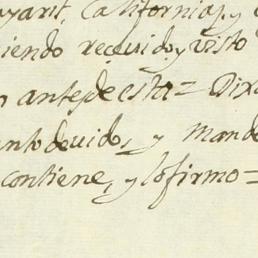 ayarit, Californias, y
iendo recivido, y visto
antesdeesta = Dixo
ntodevido, y mando
contiene, y lo firmo =